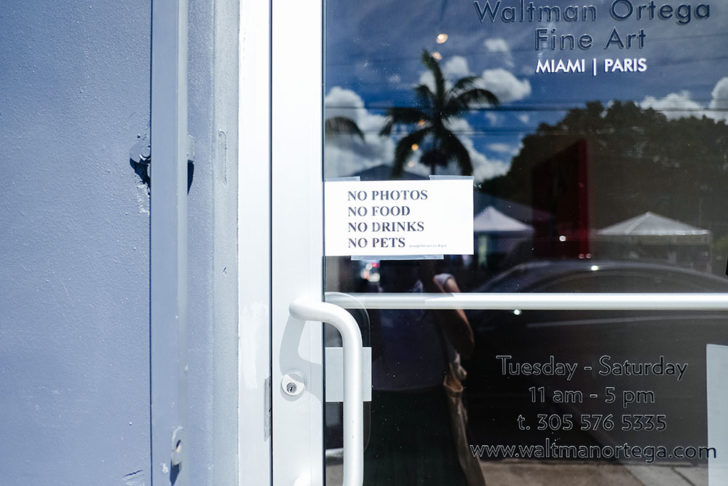 Waltman Ortega
Fine Art
MIAMI | PARIS
NO PHOTOS
NO FOOD
NO DRINKS
NO PETS
Tuesday - Saturday
11 am - 5 pm
t. 305 576 5335
www.waltmanortega.com